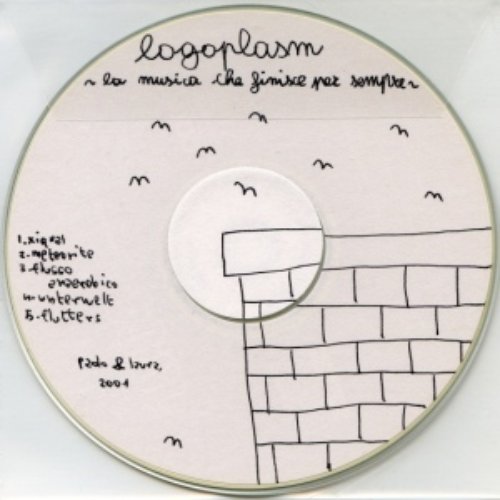 logoplasm
~ la musica che finisce per sempre ~
2. meteorite
3. flusso
anaerobico
4. unterwelt
5. flutters
paolo & laura,
2001